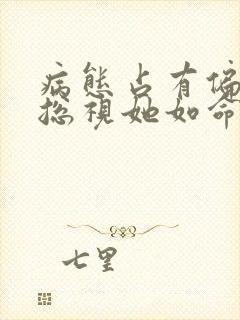 病態占有偏
總視她如命
七里